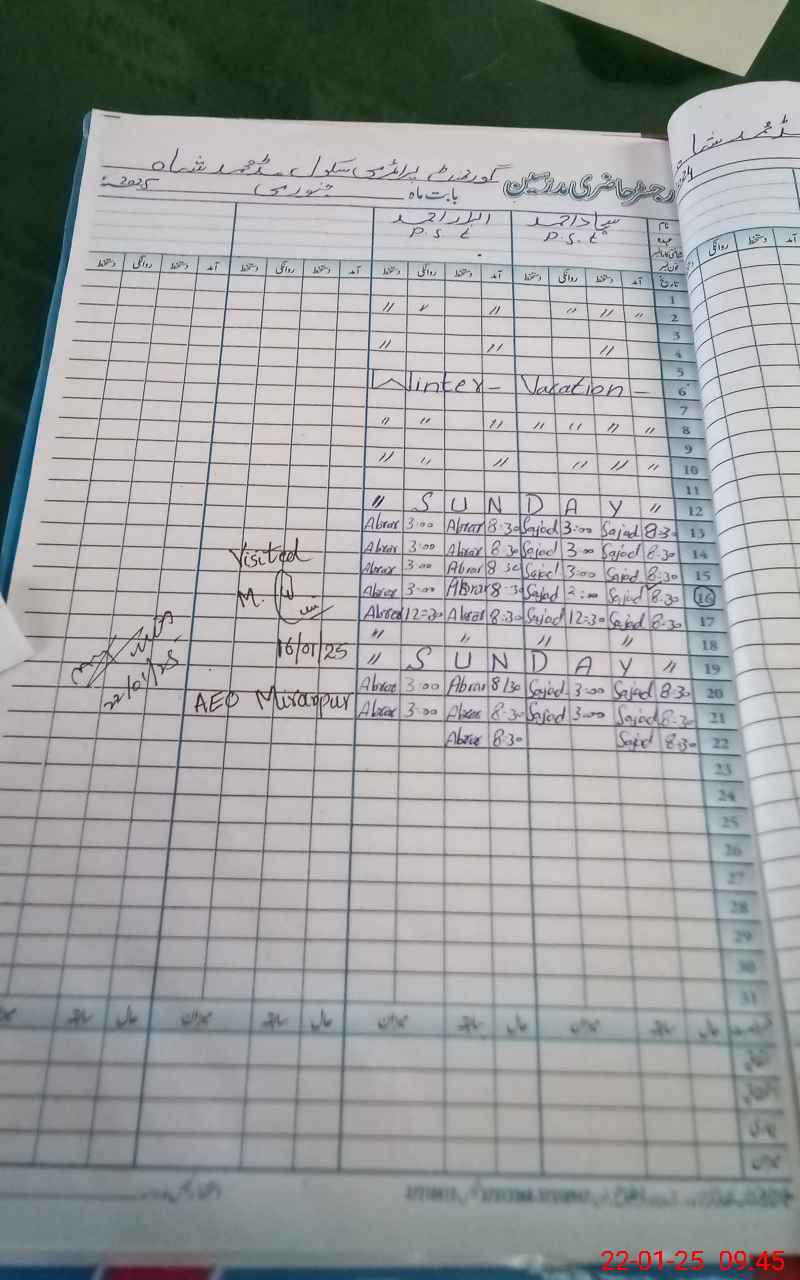 رجسٹر حاضری مدرسین گورنمنٹ پرائمری سکول محمد شاہ
بابت ماہ جنوری 2025
نام سجاد احمد ابرار احمد
عہدہ P.S.t P.S.t
تاریخ آمد دستخط روانگی دستخط آمد دستخط روانگی دستخط آمد دستخط روانگی دستخط آمد دستخط روانگی دستخط
1
2 " " " " " "
3
4 " " "
5
6 Winter - Vacation -
7
8 " " " " " " "
9
10 " " " " " "
11
12 " S U N D A Y "
Abrar 3:00 Abrar 8:30 Sajad 3:00 Sajad 8:30 13
Abrar 3:00 Abrar 8:30 Sajad 3:00 Sajad 8:30 14
Visited
Abrar 3:00 Abrar 8:30 Sajad 3:00 Sajad 8:30 15
M.
Abrar 3:00 Abrar 8:30 Sajad 2:00 Sajad 8:30 16
Abrar 12:30 Abrar 8:30 Sajad 12:30 Sajad 8:30 17
" " " " 18
16/01/25
" S U N D A Y " 19
22/01/25
Abrar 3:00 Abrar 8/30 Sajad 3:00 Sajad 8:30 20
AEO Miranpur
Abrar 3:00 Abrar 8:30 Sajad 3:00 Sajad 8:30 21
Abrar 8:30 Sajad 8:30 22
23
24
25
26
27
28
29
30
31
حال سابقہ میزان حال سابقہ میزان حال سابقہ میزان حال سابقہ
22-01-25 09:45